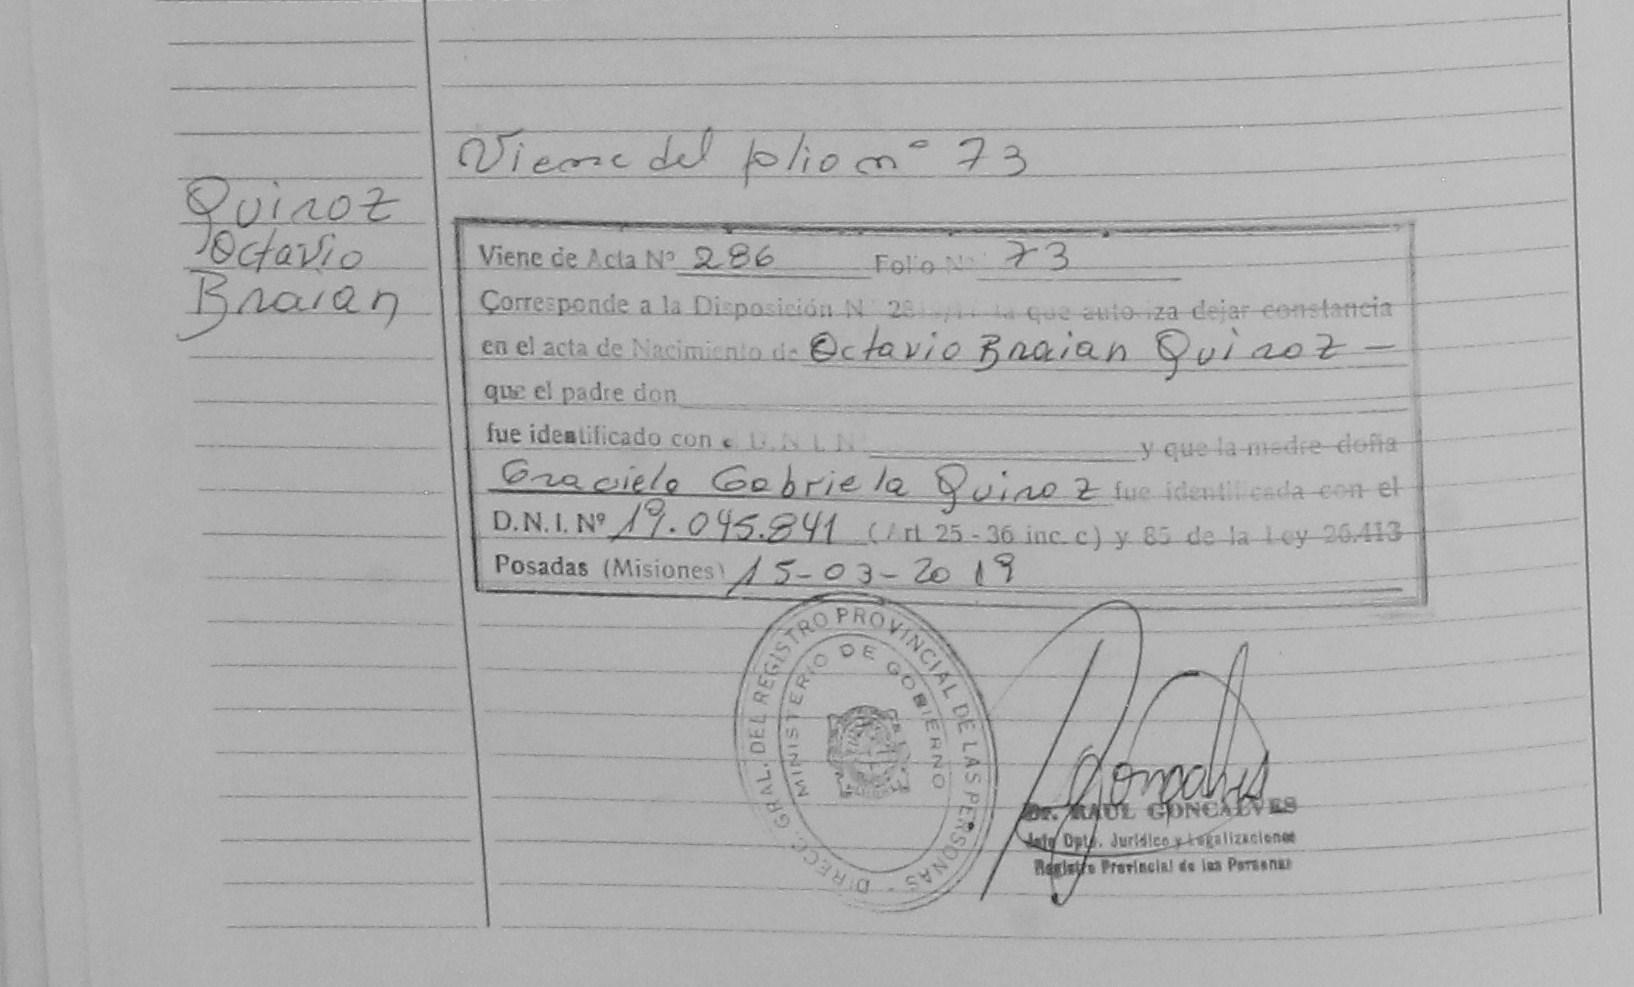 Viene del folio nº 73
Quiroz
Octavio
Braian
Viene de Acta Nº 286 Folio Nº 73
Corresponde a la Disposición N la que autoriza dejar constancia
en el acta de Nacimiento de Octavio Braian Quiroz -
que el padre don
fue identificado con D.N.I. N y que la madre doña
Graciela Gabriela Quiroz fue identificada con el
D.N.I. Nº 19.045.841 (Art 25 - 36 inc. c) y 85 de la Ley 26.413
Posadas (Misiones) 15-03-2019
DIRECC. GRAL. DEL REGISTRO PROVINCIAL DE LAS PERSONAS -
MINISTERIO DE GOBIERNO
Dr. RAUL GONCALVES
Jefe Dpto. Jurídico y Legalizaciones
Registro Provincial de las Personas